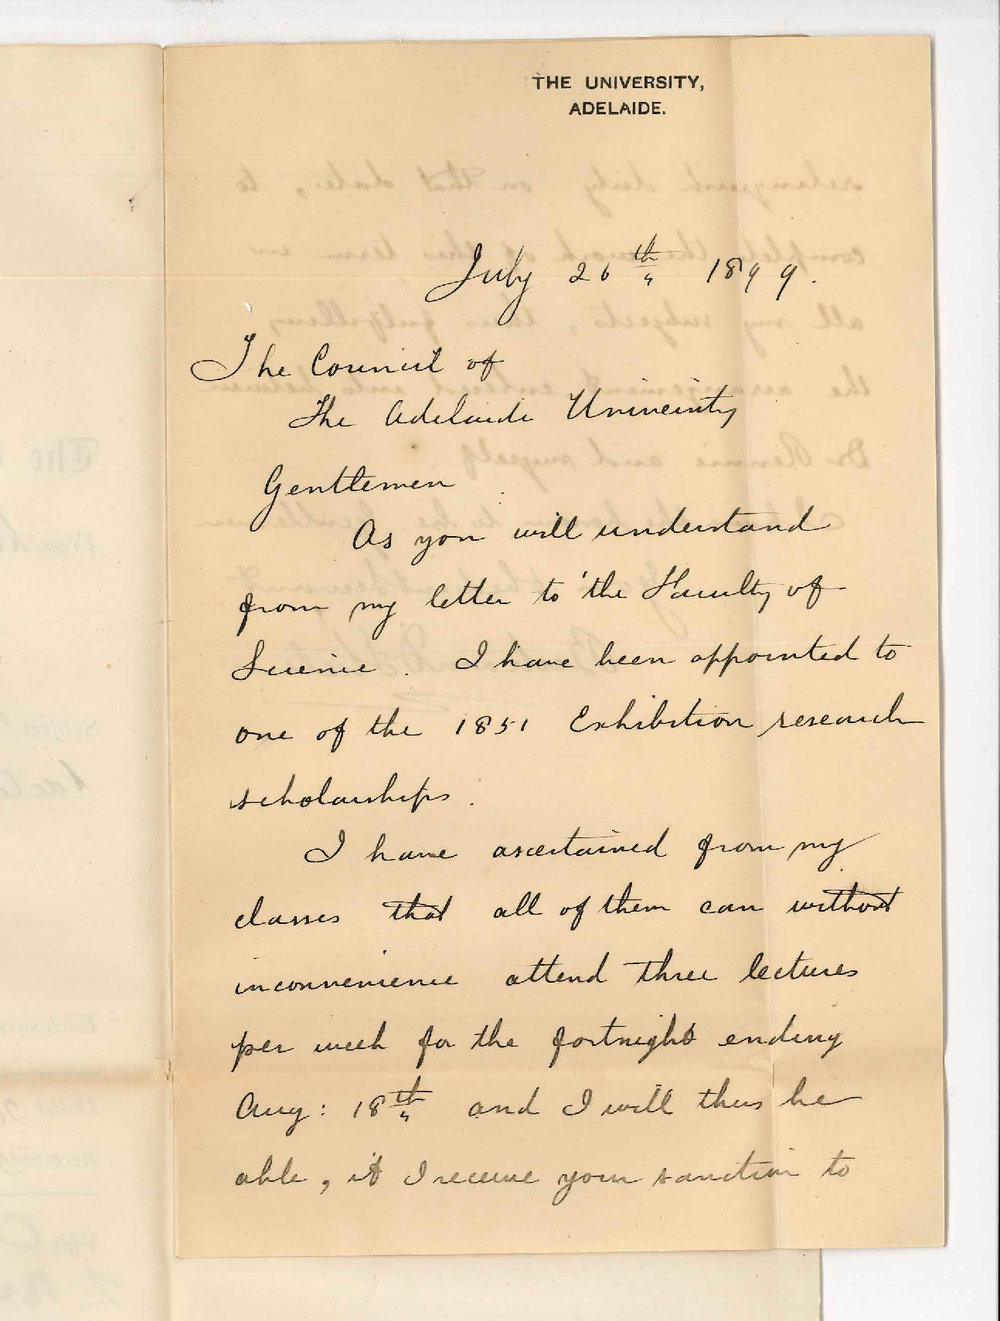 THE UNIVERSITY,
ADELAIDE.
July 26th 1899.
The Council of
The Adelaide University
Gentlemen
As you will understand
from my letter to the Faculty of
Science. I have been appointed to
one of the 1851 Exhibition research
scholarships.
I have ascertained from my
classes that all of them can without
inconvenience attend three lectures
per week for the fortnight ending
Aug: 18th and I will thus be
able, if I receive your sanction to